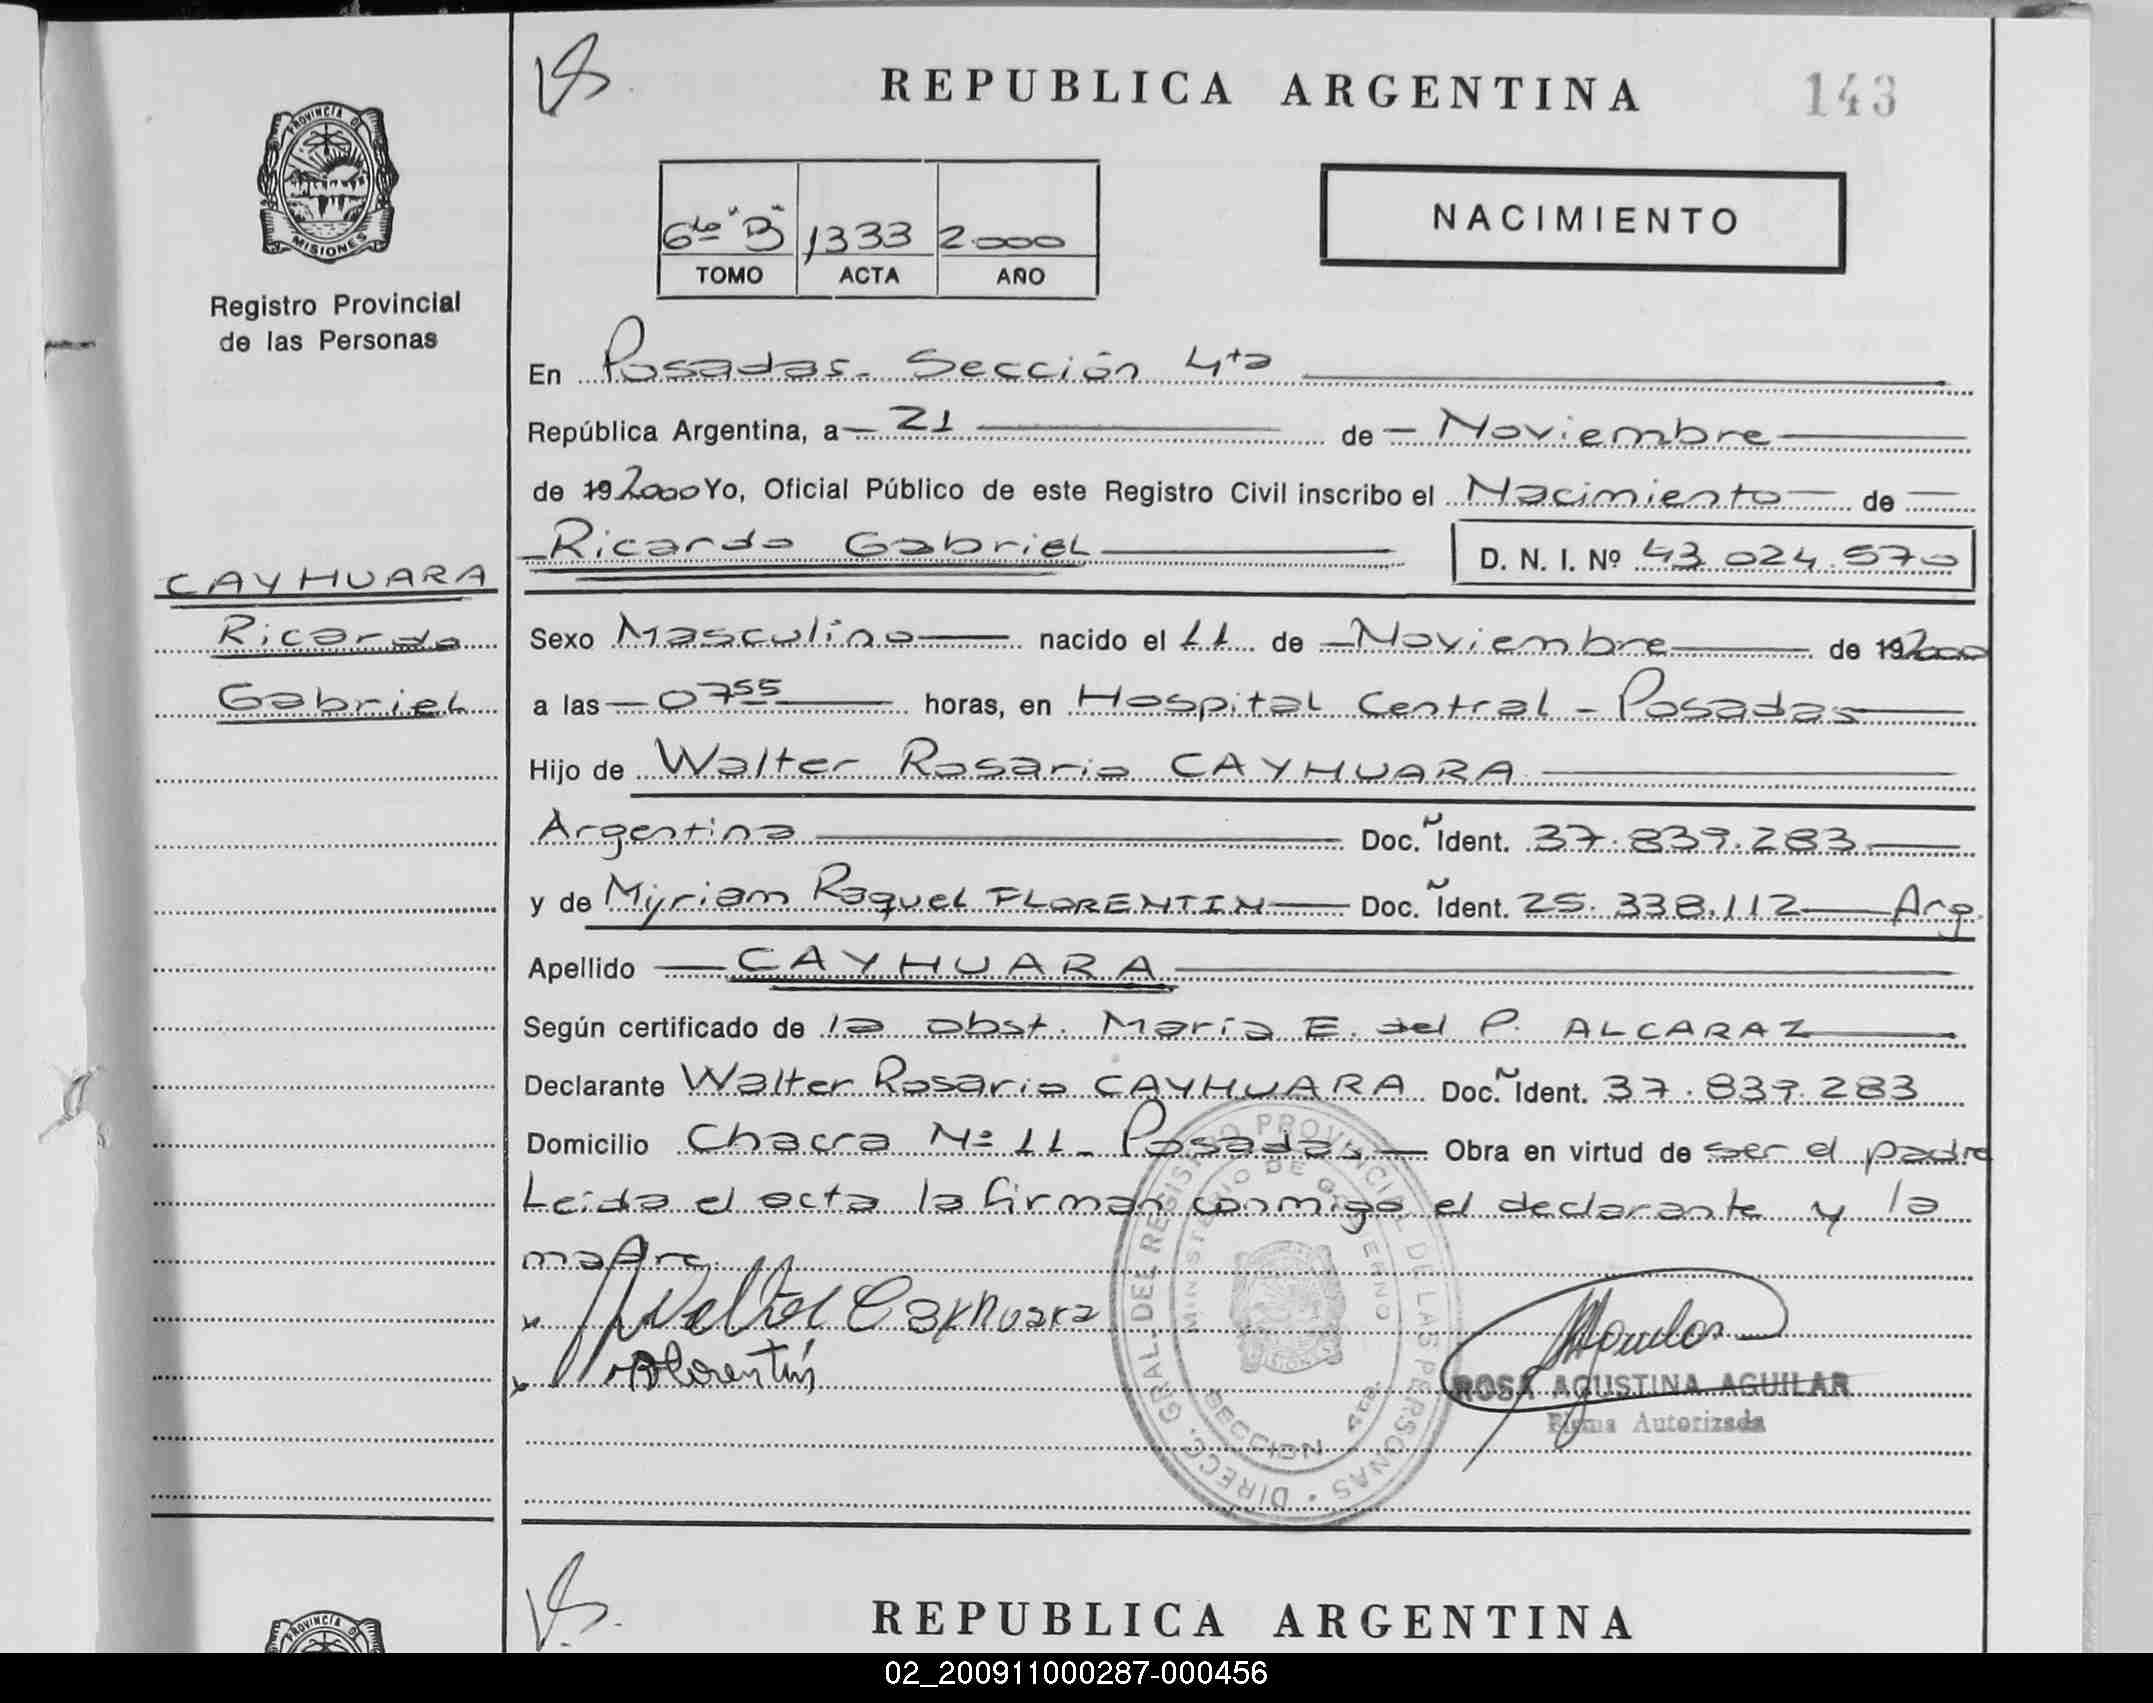 REPUBLICA ARGENTINA
143
PROVINCIA DE
MISIONES
Registro Provincial
de las Personas
6to "B" 1333 2.000
TOMO ACTA AÑO
NACIMIENTO
En Posadas. Sección 4ta
República Argentina, a 21 de Noviembre
de 19 2000 Yo, Oficial Público de este Registro Civil inscribo el Nacimiento de
Ricardo Gabriel D. N. I. Nº 43.024.570
CAYHUARA
Ricardo
Gabriel
Sexo Masculino nacido el 11 de Noviembre de 19 2000
a las 07 55 horas, en Hospital Central - Posadas
Hijo de Walter Rosario CAYHUARA
Argentina Doc. Ident. 37.839.283
y de Myriam Raquel FLORENTIN Doc. Ident. 25.338.112 Arg.
Apellido CAYHUARA
Según certificado de la obst. María E. del P. ALCARAZ
Declarante Walter Rosario CAYHUARA Doc. Ident. 37.839.283
Domicilio Chacra Nº 11 - Posadas Obra en virtud de ser el padre
Leida el acta la firman conmigo el declarante y la
madre.
x Walter Cayhuara
x Florentín
DIRECC. GRAL. DEL REGISTRO PROVINCIAL DE LAS PERSONAS
MINISTERIO DE GOBIERNO
SECCION 4ta.
ROSA AGUSTINA AGUILAR
Firma Autorizada
REPUBLICA ARGENTINA
PROVINCIA DE
02_200911000287-000456